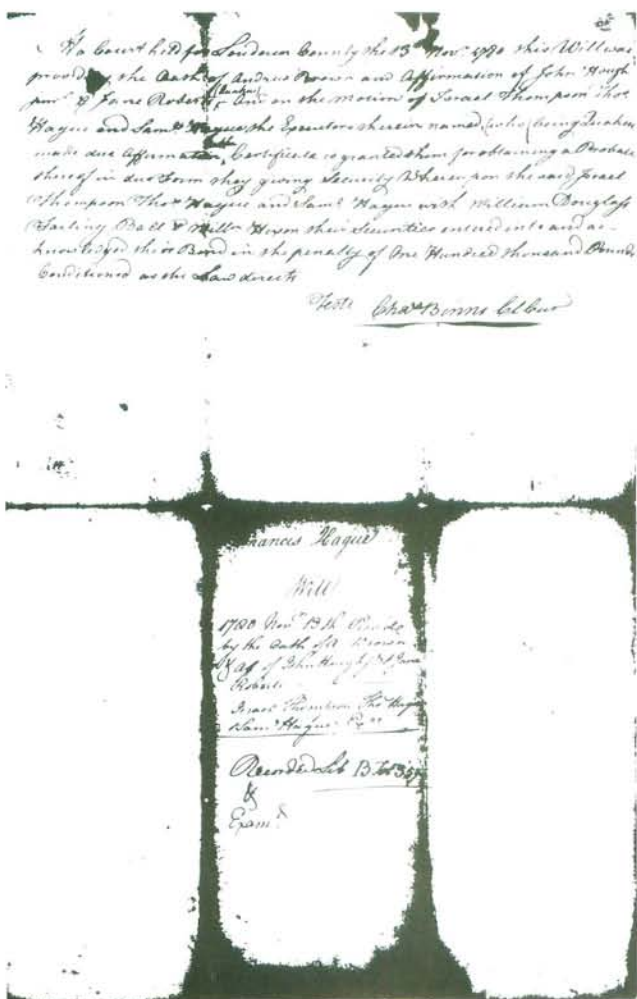 At a Court held for Loudoun County the 13th Novr 1780 this Will was
proved by the Oath of Andrew Brown and Affirmation of John Hough
junr & Jane Roberts (Quakers) And on the motion of Israel Thompson Thos
Hague and Saml Hague the Executors therein named (who being Quakers
made due Affirmation, Certificate is granted them for obtaining a Probate
thereof in due Form they giving Security Whereupon the said Israel
Thompson Thos Hague and Saml Hague with William Douglass
Farling Ball & Willm Hixon their Securities entered into and ac-
knowledged their Bond in the penalty of One Hundred thousand Pounds
Conditioned as the Law directs
Teste Chas Binns Cl Cur
Francis Hague
Will
1780 Novr 13th Proved
by the Oath of A Brown
& af of John Hough Jr & Jane
Roberts
Israel Thompson Thos Hague
& Saml Hague Exrs
Recorded Lib B
&
Examd